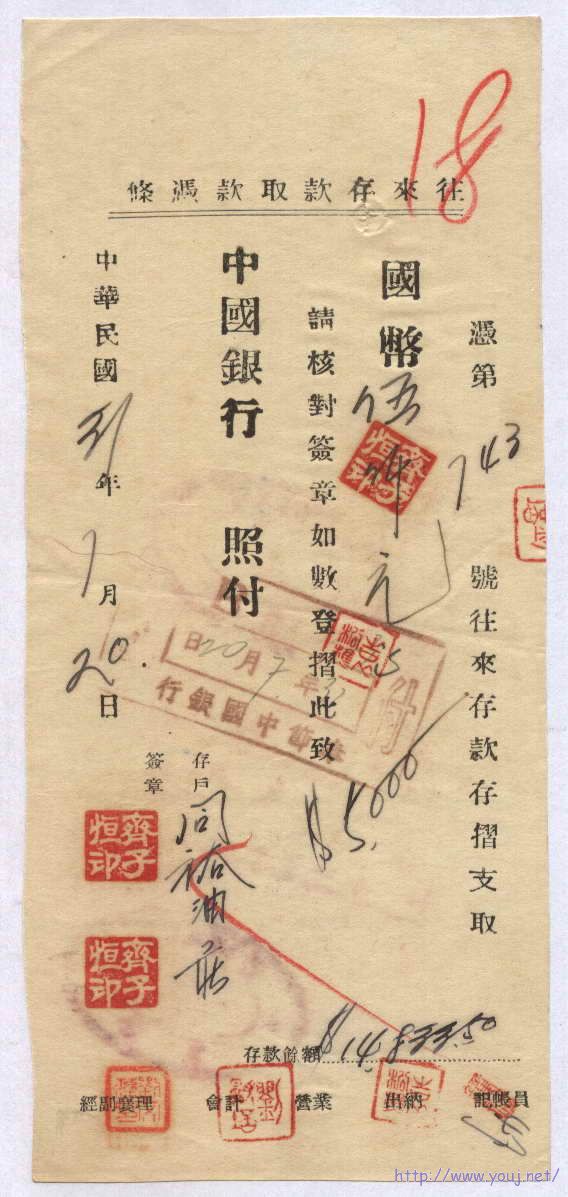 18
往來存款取款憑條
憑第 743 號往來存款存摺支取
國幣 伍仟元
$5,000
請核對簽章如數登摺此致
中國銀行 照付
付
年 7月 20日
中國銀行
中華民國 31年 7月 20日
存戶
簽章
同裕油莊
齊子恒印
齊子恒印
齊子恒印
存款餘額 $14,833.50
經副襄理 會計 營業 出納 記帳員
http://www.youj.net/